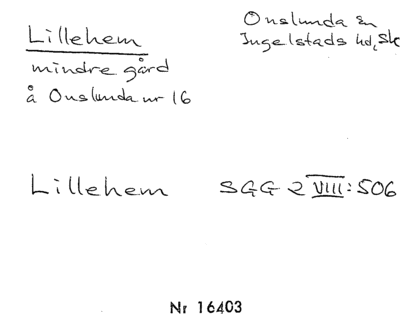 Lillehem
mindre gård
å Onslunda nr 16
Onslunda sn
Ingelstads hd, Sk
Lillehem SGG 2 VIII: 506
Nr 16403